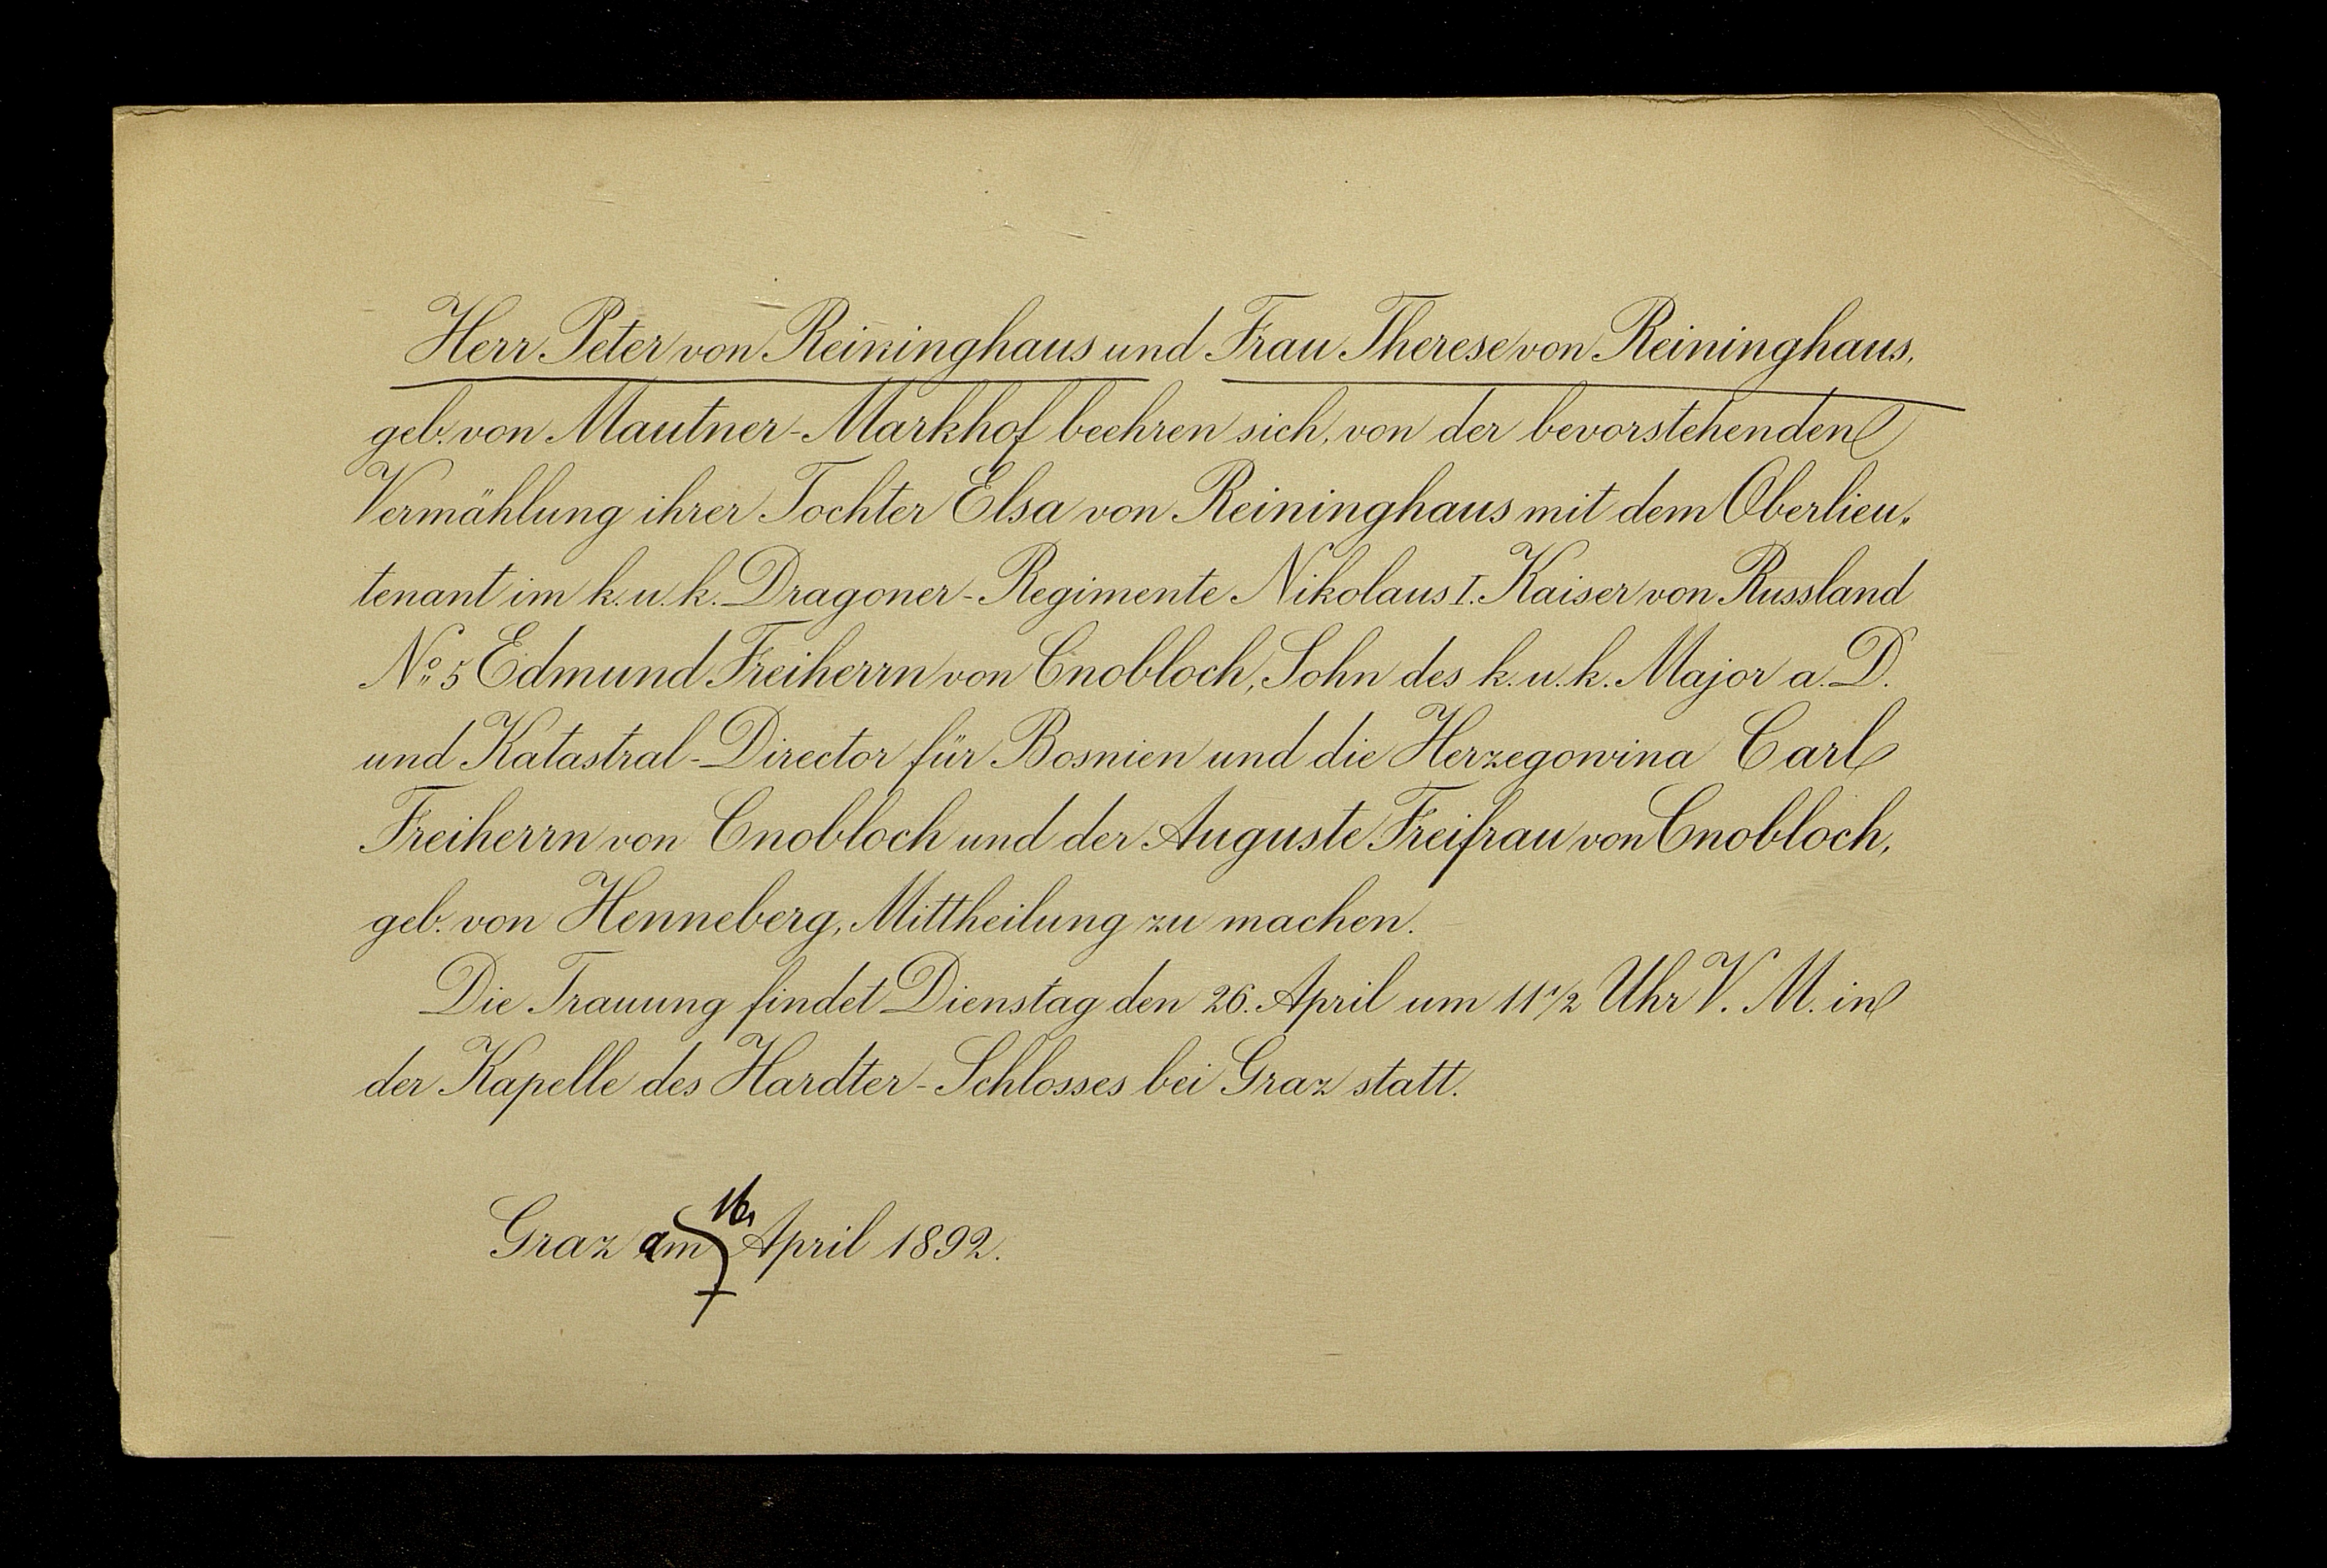 Herr Peter von Reininghaus und Frau Therese von Reininghaus,
geb. von Mautner-Markhof beehren sich, von der bevorstehenden
Vermählung ihrer Tochter Elsa von Reininghaus mit dem Oberlieu„
tenant im k. u. k. Dragoner-Regimente Nikolaus I. Kaiser von Russland
No. 5 Edmund Freiherrn von Cnobloch, Sohn des k. u. k. Major a. D.
und Katastral-Director für Bosnien und die Herzegowina Carl
Freiherrn von Cnobloch und der Auguste Freifrau von Cnobloch,
geb. von Henneberg, Mittheilung zu machen.
Die Trauung findet Dienstag den 26. April um 11 1/2 Uhr V. M. in
der Kapelle des Hardter-Schlosses bei Graz statt.
Graz am 16. April 1892.